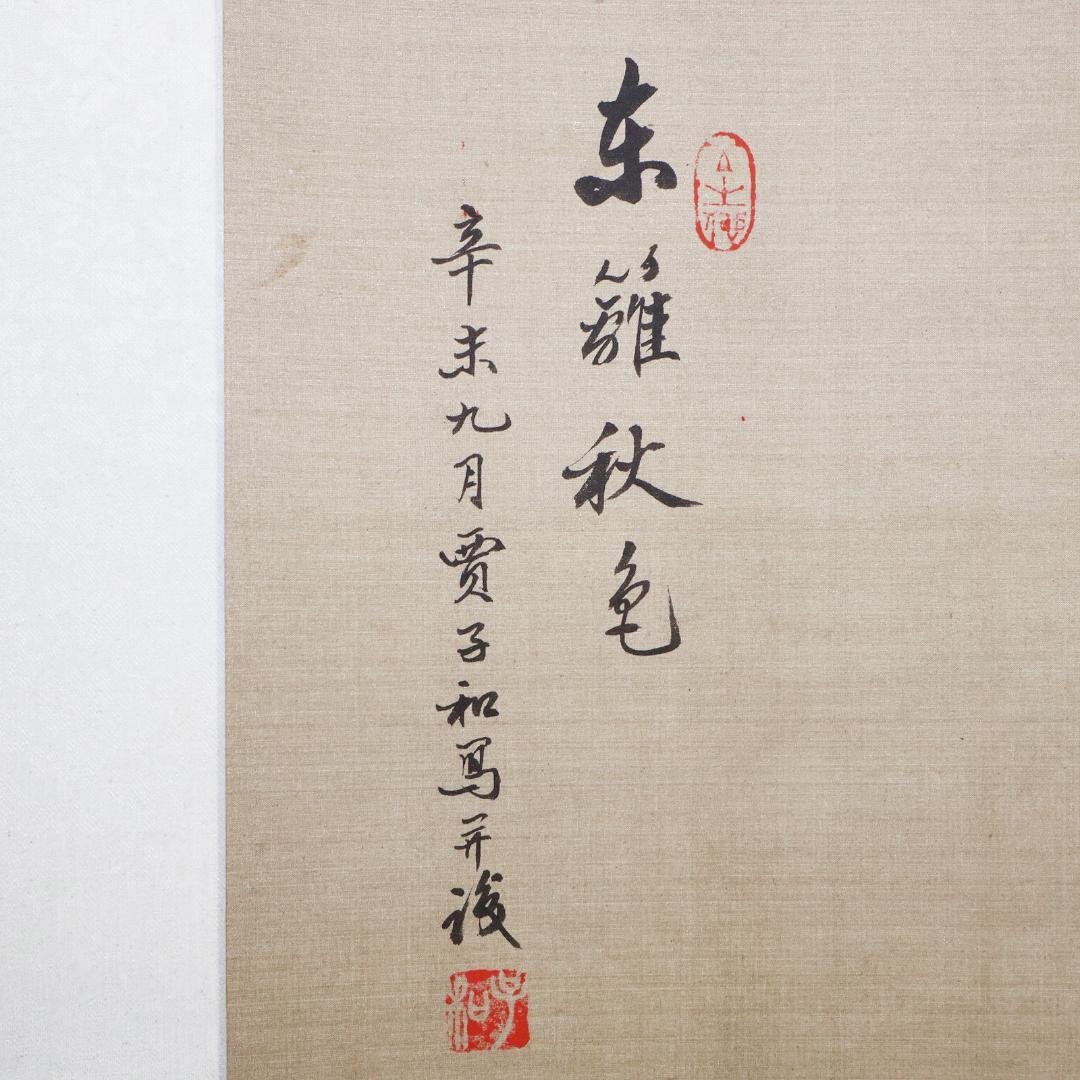 东籬秋色
辛未九月贾子和写并
子和